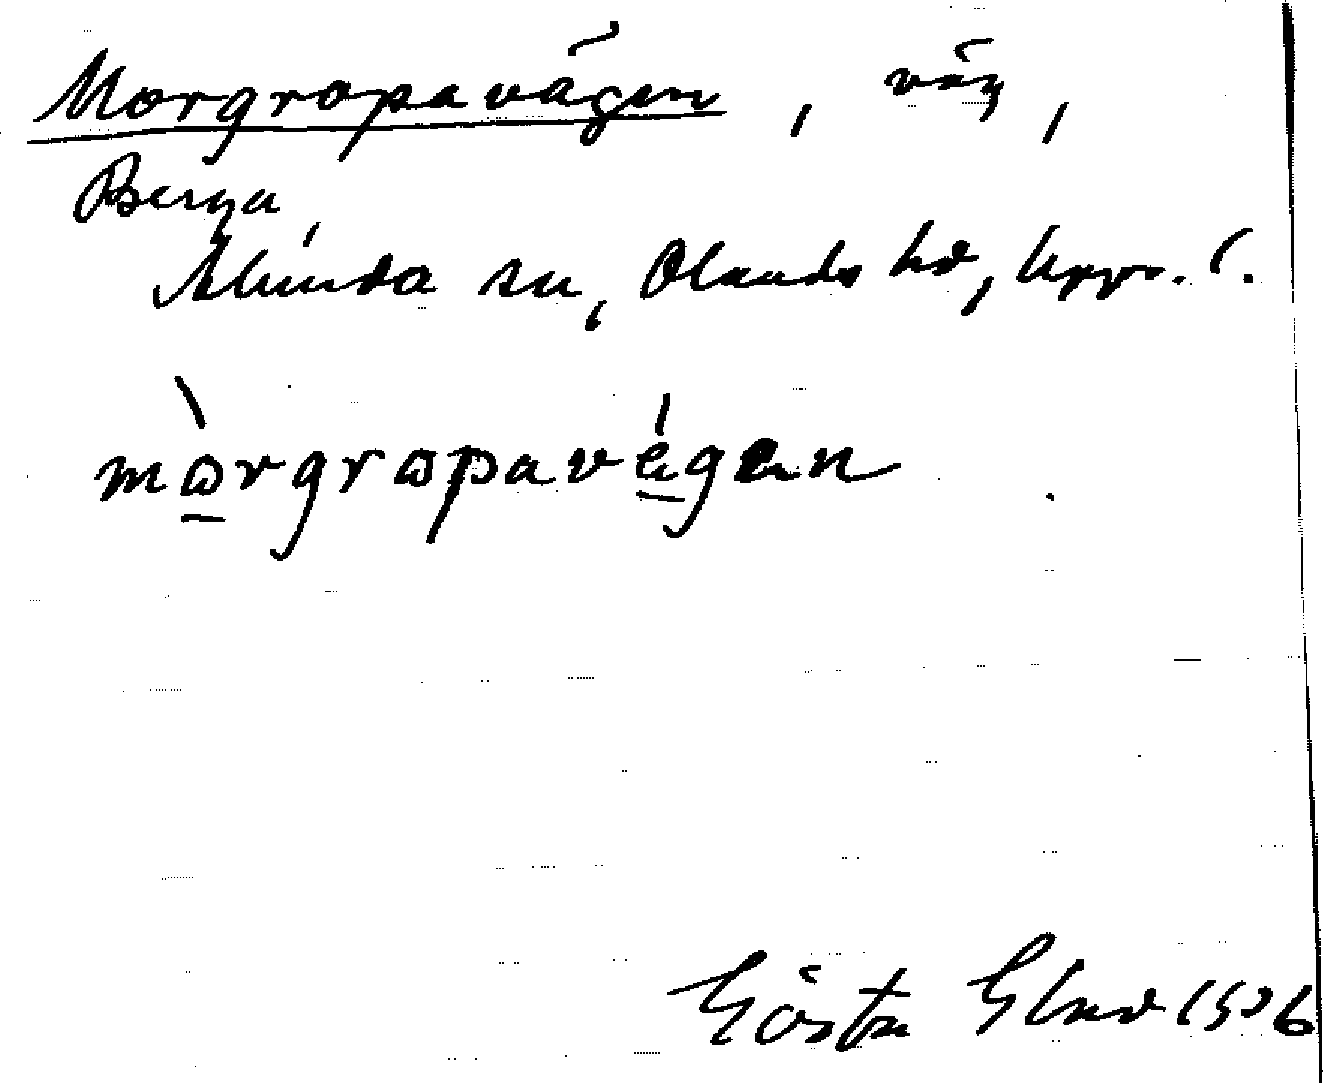 Morgropavägen, väg,
Berga,
Alunda sn, Olands hd, Upps. l.
mòrgropavégen
Gösta